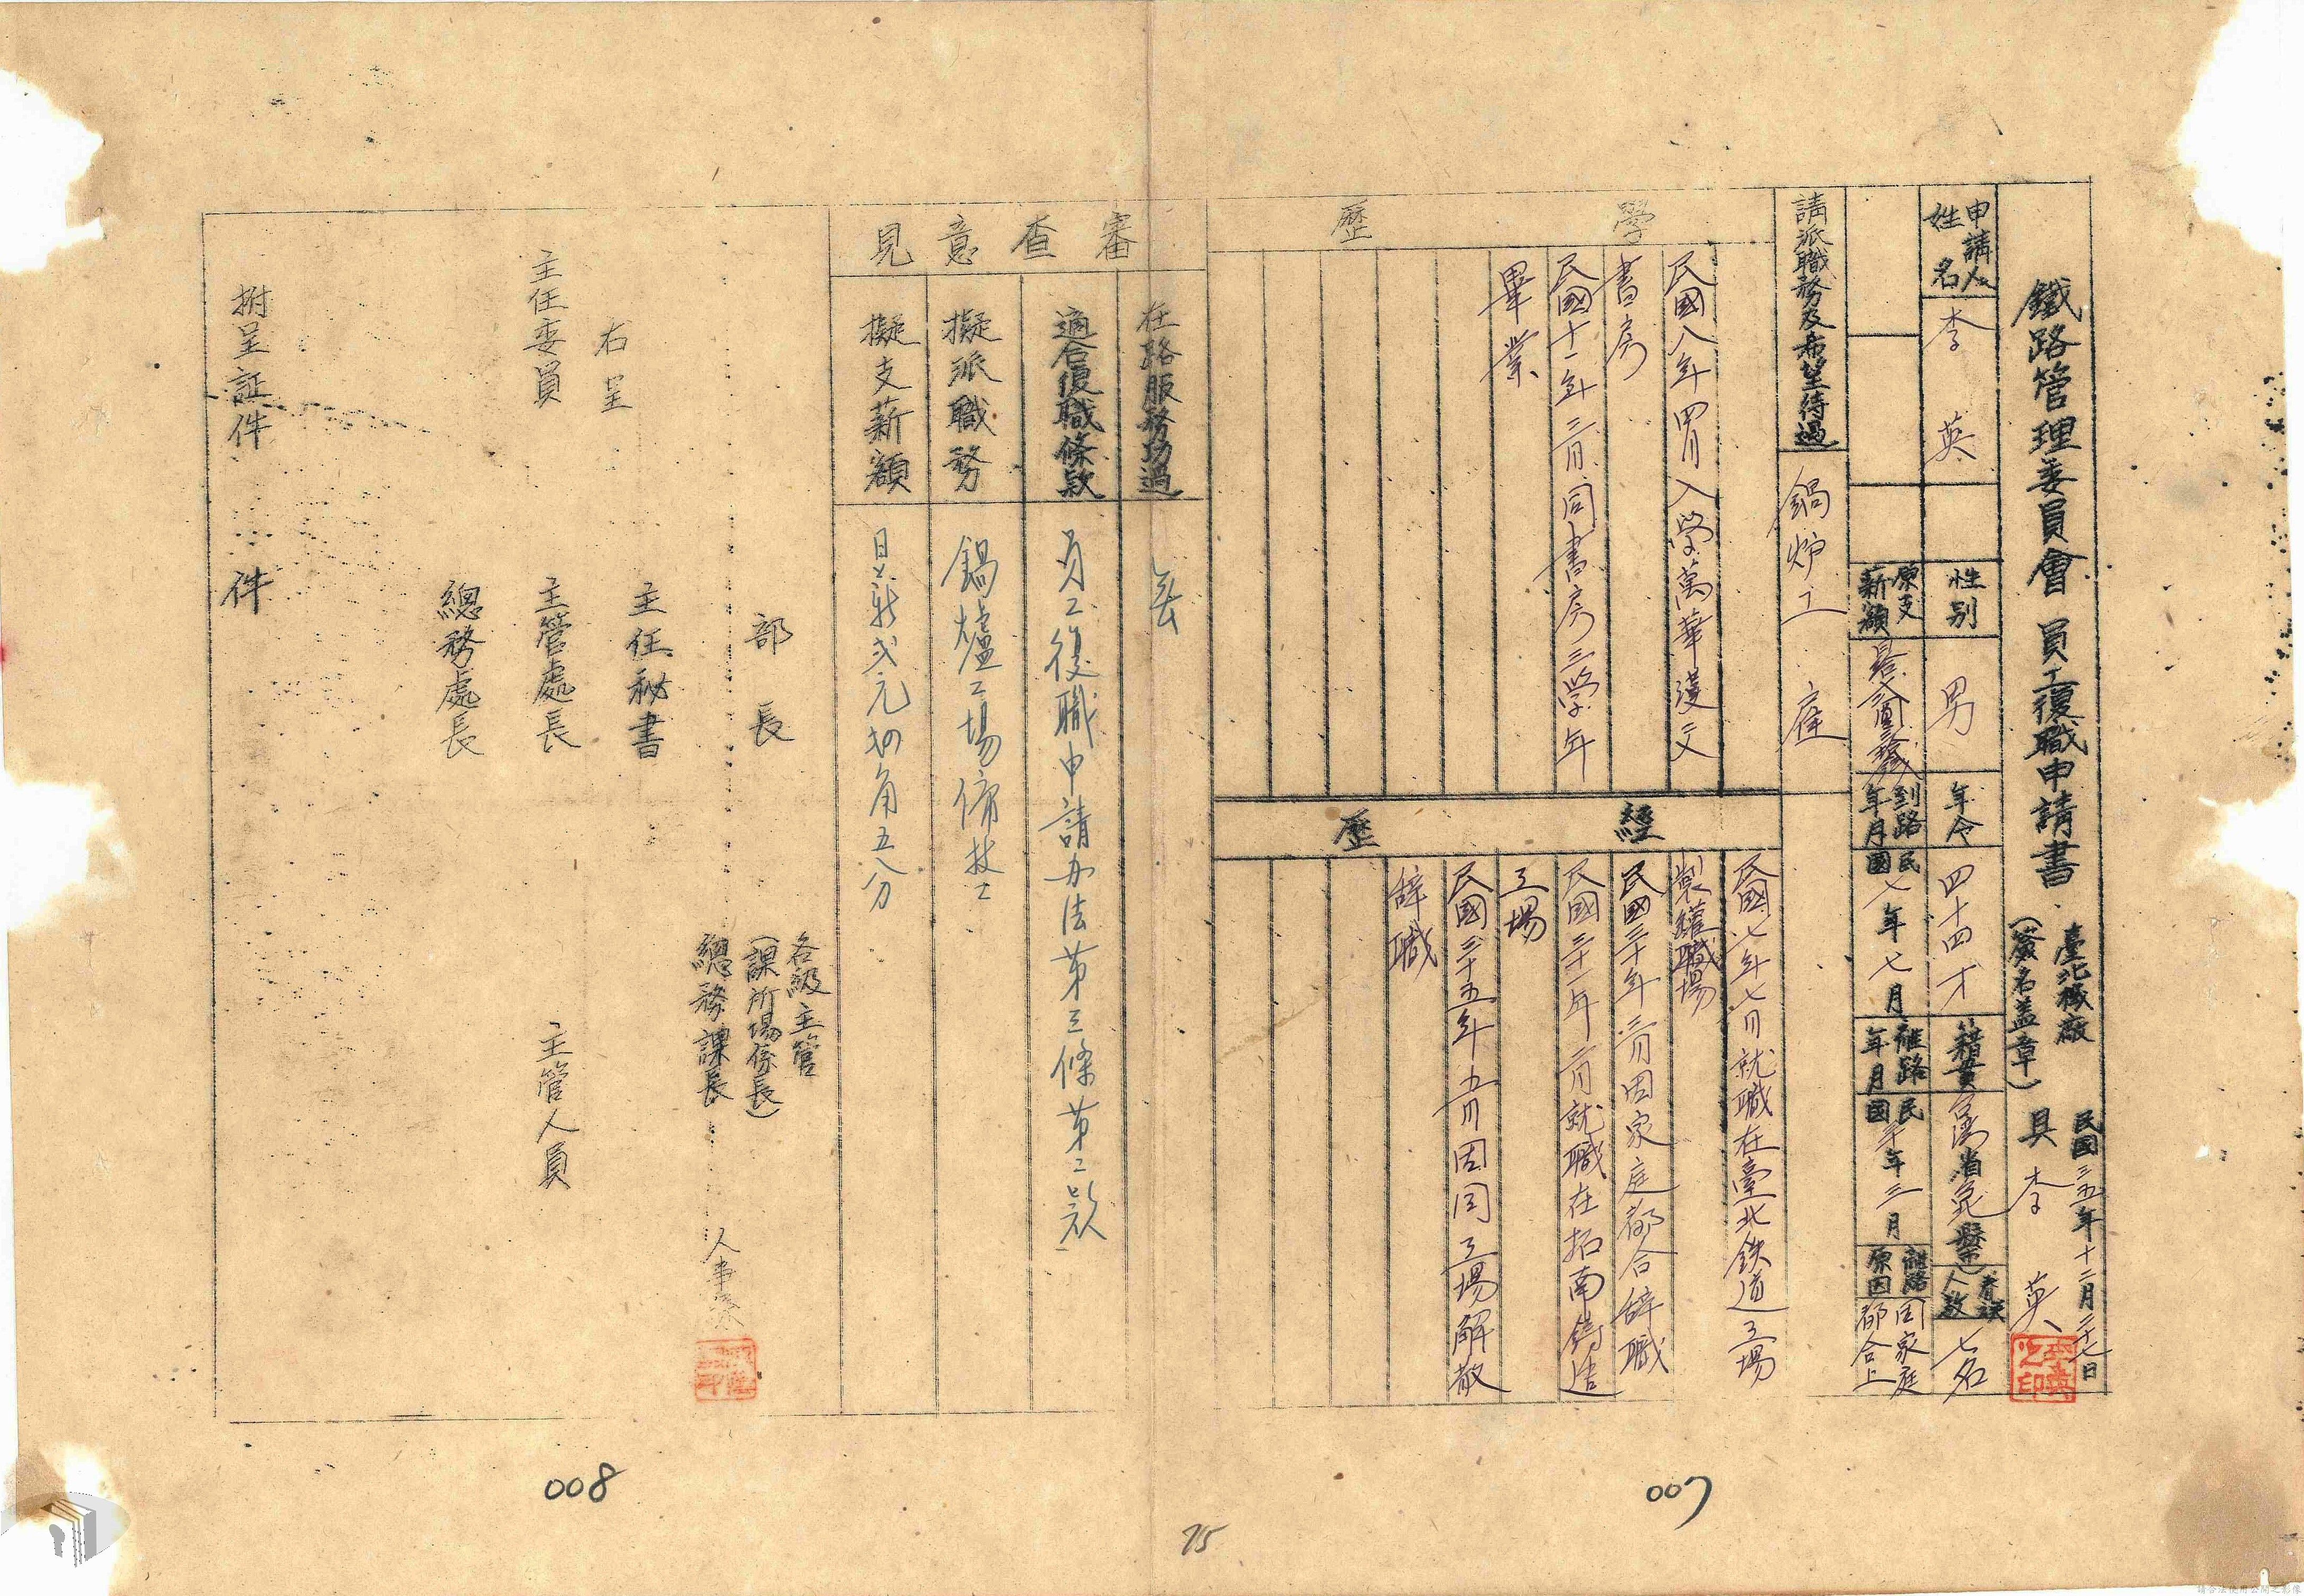 鐵路管理委員會 員工復職申請書
臺北機廠
(簽名盖章)
民國三五年十二月二十七日
具 李 英
李英之印
申請人姓名
李 英
性别
男
年令
四十四才
籍貫
省
縣
眷族人数
七名
原支薪額
到路年月
民國七年七月
離路年月
民國 年三月
離路原因
因家庭都合上
請派職務及希望待遇
鍋炉工 座
學歷
民國八年四月入學萬華漢文
書房
民國十一年三月同書房三學年
畢業
經歷
民國七年七月就職在臺北鉄道工場
製鑵職場
民國三十年三月因家庭都合辞職
民國三十一年 月就職在拓南鑄造
工場
民國三十五年 月因同工場解散
辞職
審查意見
在路服務功過
適合復職條款
員工復職申請办法第三條第二款
擬派職務
鍋爐工場 技工
擬支薪額
日薪弍元四角五八分
部長
各級主管
(課所場係長)
總務課長
人事
右呈
主任委員
主任秘書
主管處長
總務處長
主管人員
附呈証件 件
008
007
75